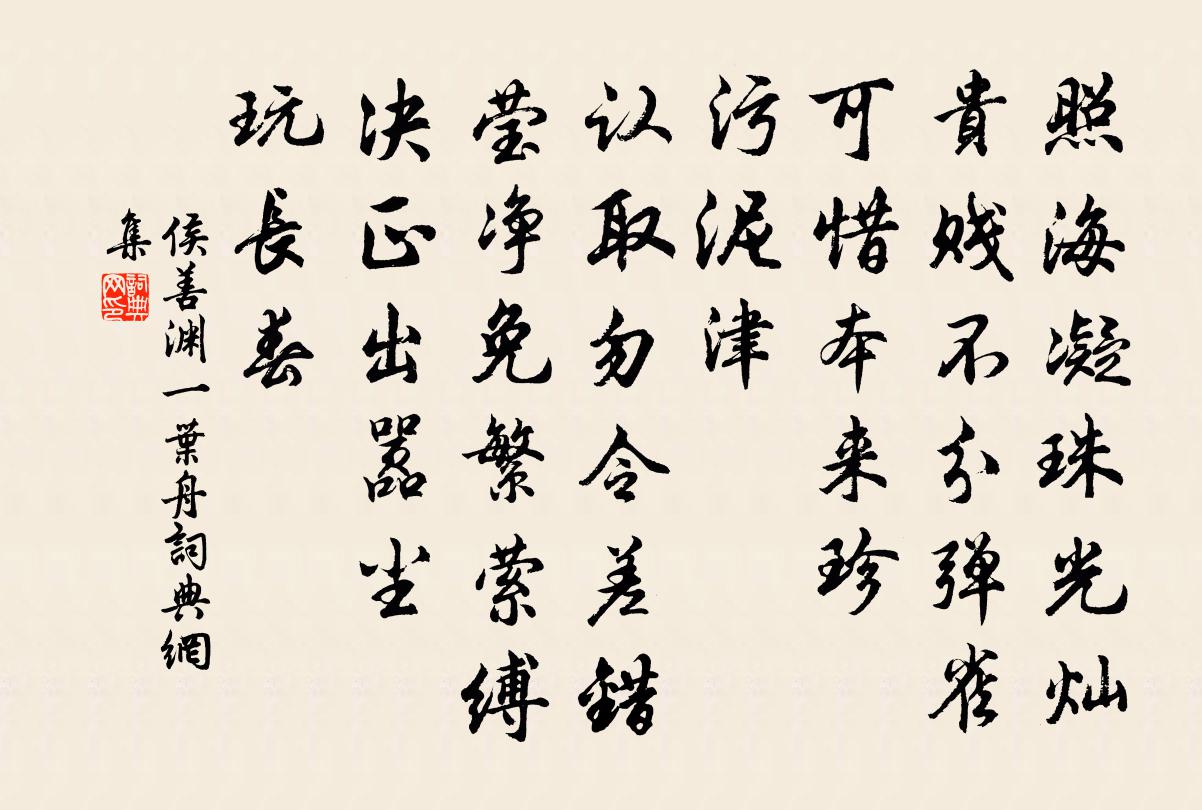 照海凝珠光灿
貴贱不分弹雀
可惜本来珍
污泥津
认取勿令差錯
莹净免繁萦缚
决正出嚣尘
玩長春
侯善渊一葉舟詞典網
集
詞典
网印